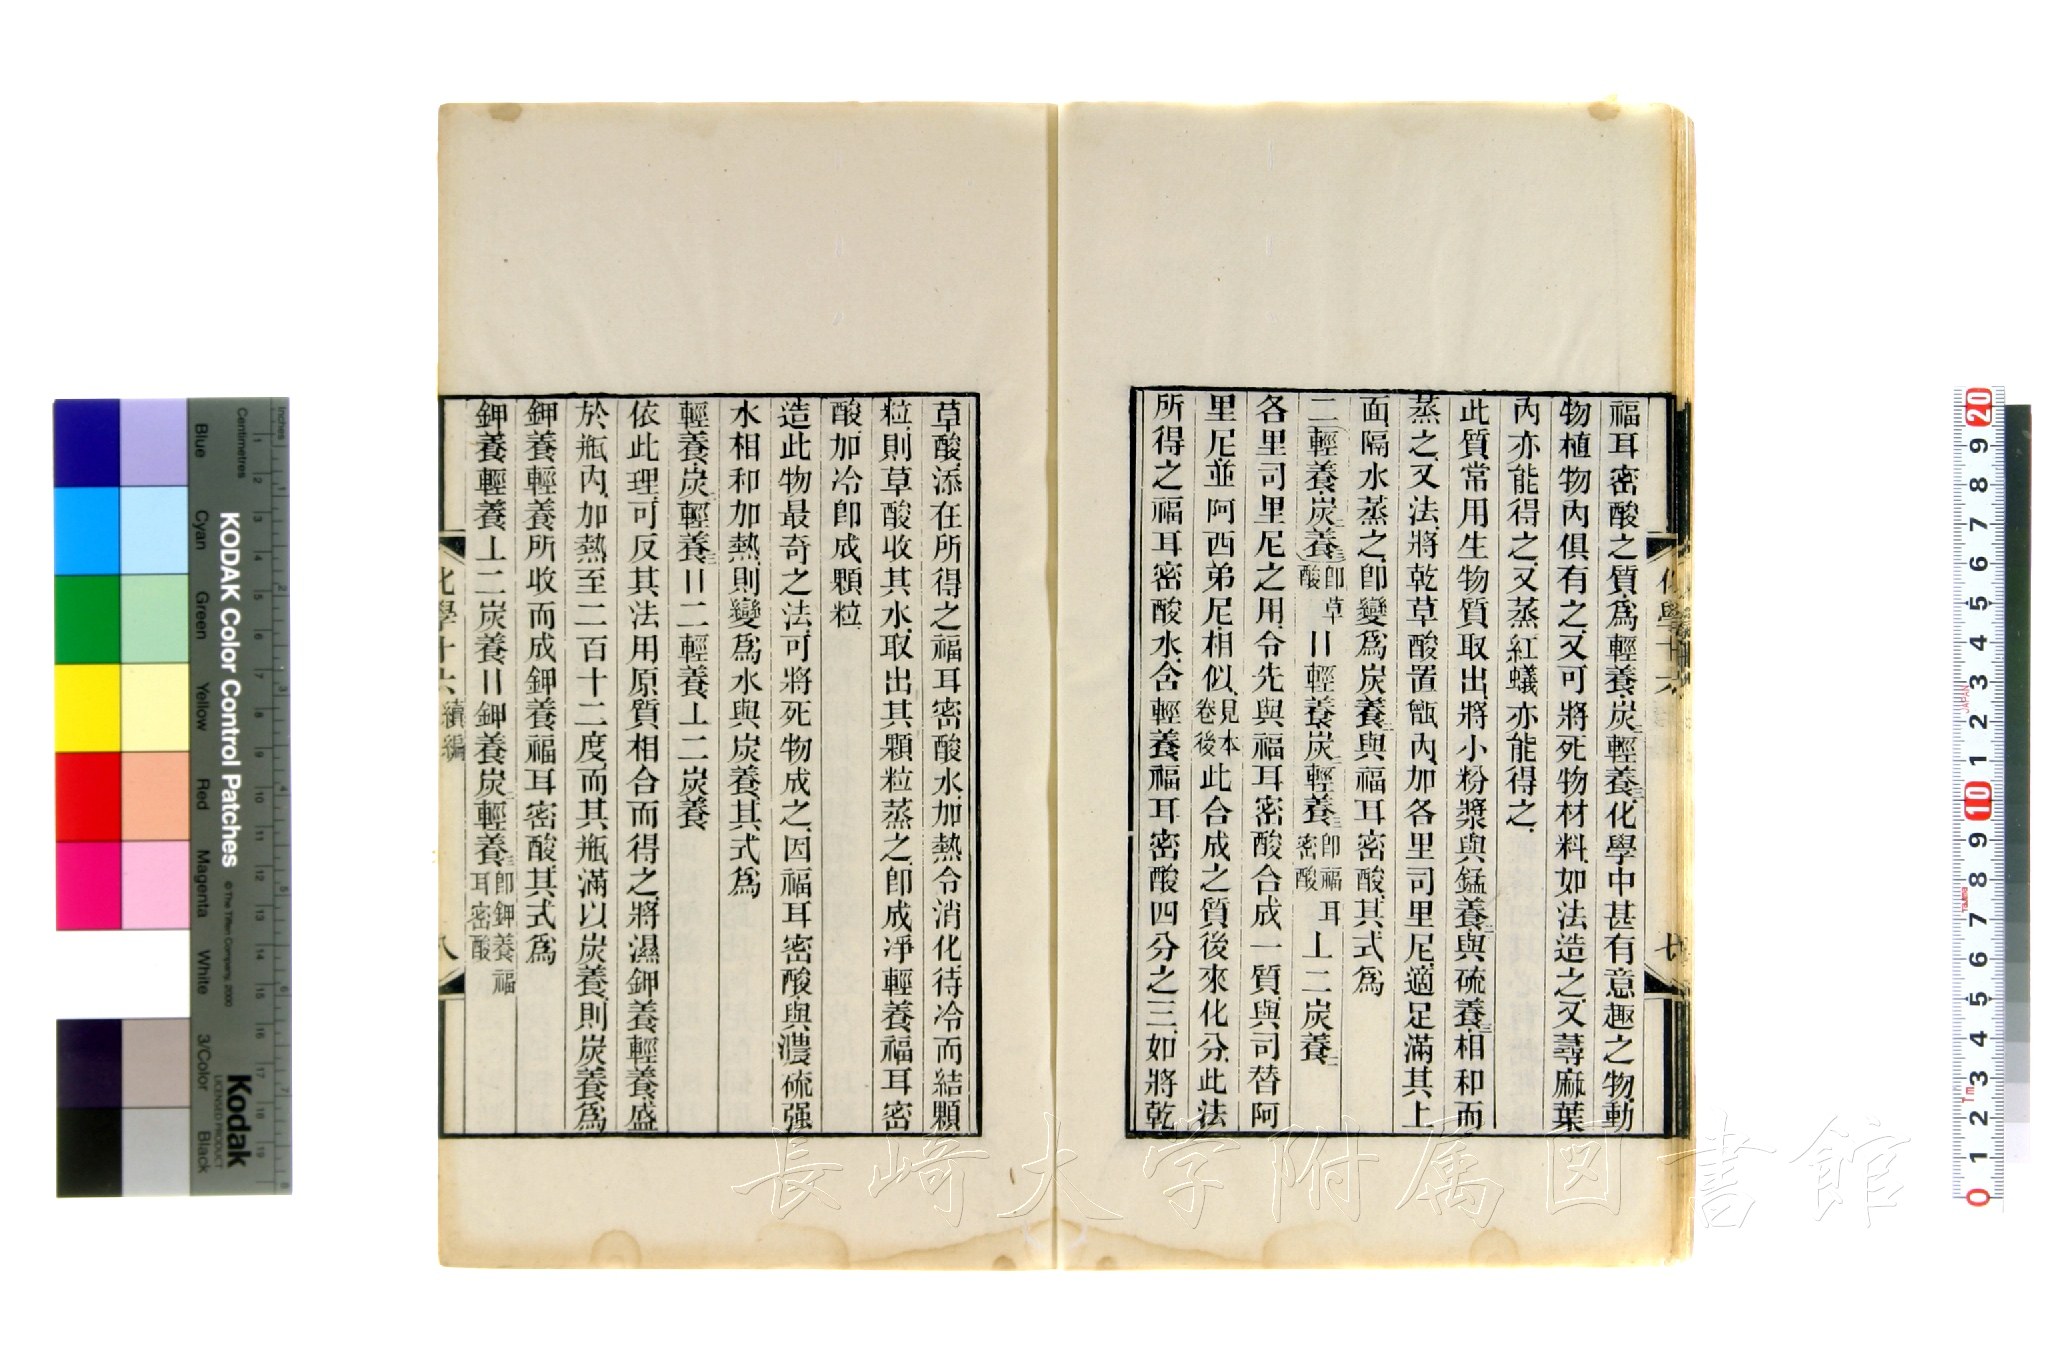 福耳密酸之質爲輕養炭輕養三化學中甚有意趣之物動
物植物內俱有之又可將死物材料如法造之又蕁麻葉
內亦能得之又蒸紅蟻亦能得之
此質常用生物質取出將小粉漿與錳養二與硫養三相和而
蒸之又法將乾草酸置甑內加各里司里尼適足滿其上
面隔水蒸之卽變爲炭養二與福耳密酸其式爲
二(輕養炭二養三)卽草酸〢輕養炭二輕養三卽福耳密酸丄二炭養二
各里司里尼之用令先與福耳密酸合成一質與司替阿
里尼並阿西弟尼相似見本卷後此合成之質後來化分此法
所得之福耳密酸水含輕養福耳密酸四分之三如將乾
化學十六
七
草酸添在所得之福耳密酸水加熱令消化待冷而結顆
粒則草酸收其水取出其顆粒蒸之卽成凈輕養福耳密
酸加冷卽成顆粒
造此物最奇之法可將死物成之因福耳密酸與濃硫强
水相和加熱則變爲水與炭養其式爲
輕養炭二輕養三〢二輕養丄二炭養
依此理可反其法用原質相合而得之將濕鉀養輕養盛
於瓶內加熱至二百十二度而其瓶滿以炭養則炭養爲
鉀養輕養所收而成鉀養福耳密酸其式爲
鉀養輕養丄二炭養〢鉀養炭二輕養三卽鉀養福耳密酸
化學十六 續編
八
KODAK Color Control Patches
© The Tiffen Company, 2000
Kodak
LICENSED PRODUCT
Inches
Centimetres
Blue
Cyan
Green
Yellow
Red
Magenta
White
3/Color
Black
JAPAN
長崎大学附属図書館